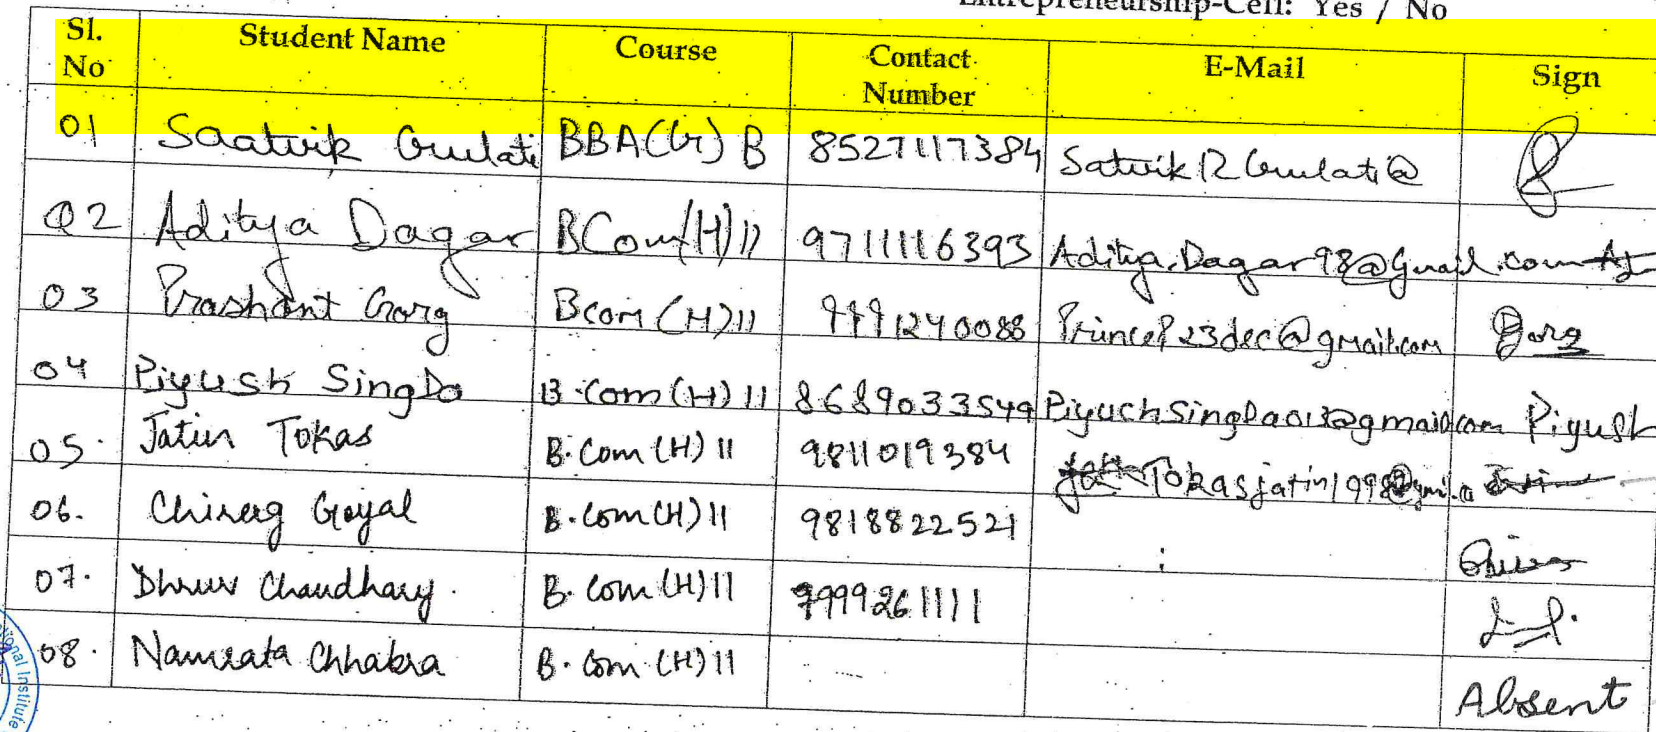 Entrepreneurship-Cell: Yes / No
Sl. No Student Name Course Contact Number E-Mail Sign
01 Saatvik Gulati BBA(G) B 8527117384 Satvik12Gulati@
02 Aditya Dagar BCom(H) II 9711116393 Aditya.Dagar98@gmail.com
03 Prashant Garg Bcom (H) II 9991240088 PrinceP23dec@gmail.com Garg
04 Piyush SingDa B.Com (H) II 8689033549 PiyuchSingDa013@gmail.com Piyush
05. Jatin Tokas B.Com (H) II 9811019384 Tokasjatin1998@
06. Chirag Goyal B.Com (H) II 9818822521
07. Dhruv Chaudhary. B.Com (H) II 9999261111
08. Namrata Chhabra B.Com (H) II Absent
onal Institute